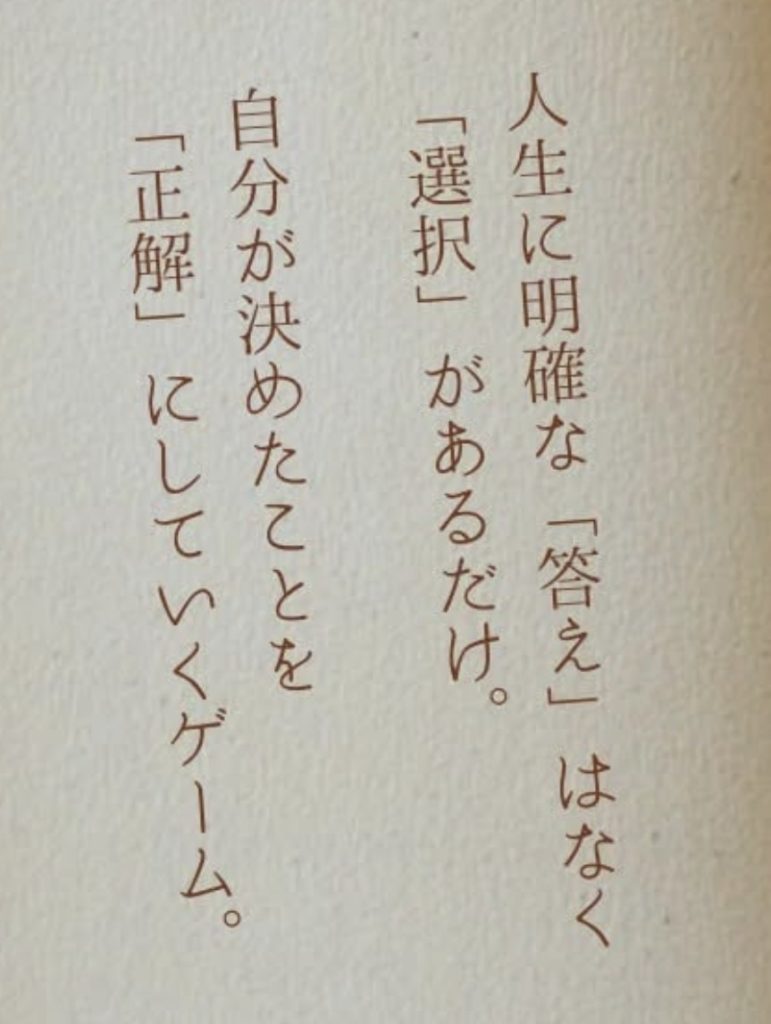 人生に明確な「答え」はなく
「選択」があるだけ。
自分が決めたことを
「正解」にしていくゲーム。